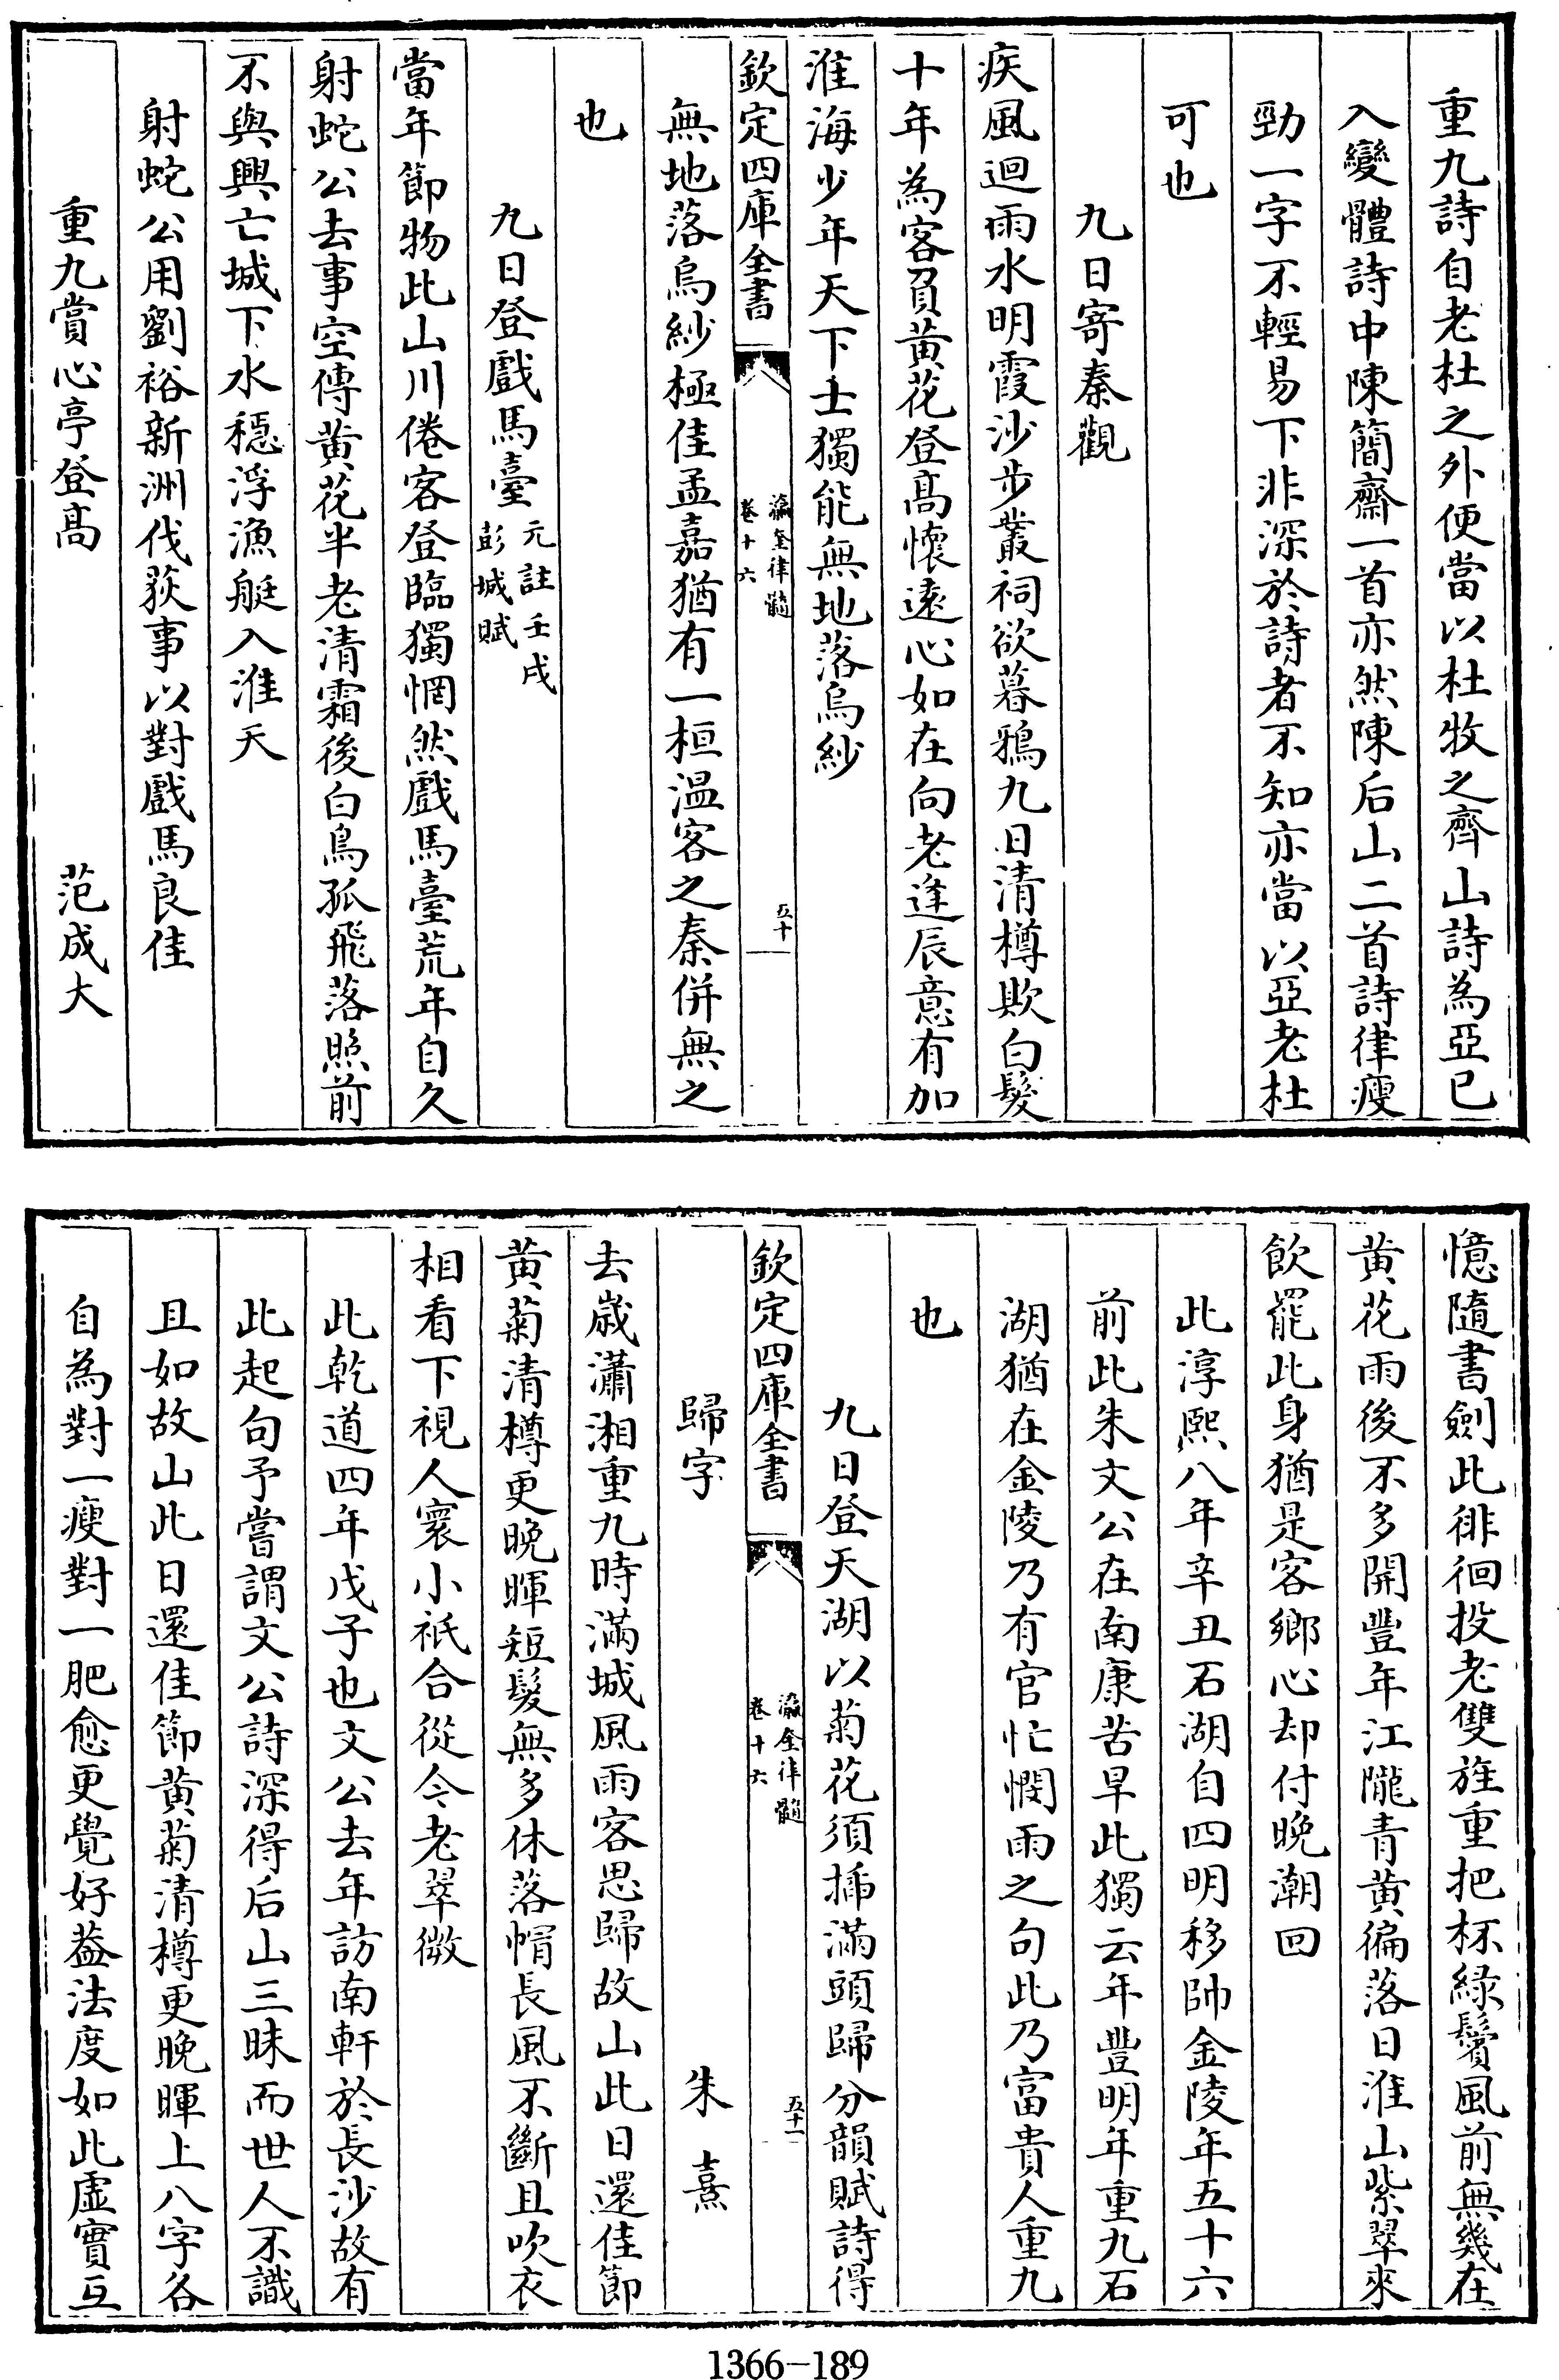 重九詩自老杜之外便當以杜牧之齊山詩為亞已
入變體詩中陳簡齋一首亦然陳后山二首詩律瘦
勁一字不輕易下非深於詩者不知亦當以亞老杜
可也
九日寄秦觀
疾風迴雨水明霞沙步叢祠欲暮鴉九日清樽欺白髮
十年為客負黄花登髙懷遠心如在向老逢辰意有加
淮海少年天下士獨能無地落烏紗
欽定四庫全書
瀛奎律髓
卷十六
五十
無地落烏紗極佳孟嘉猶有一桓温客之秦併無之
也
九日登戲馬臺
元註壬戌
彭城賦
當年節物此山川倦客登臨獨惘然戲馬臺荒年自久
射蛇公去事空傳黄花半老清霜後白鳥孤飛落照前
不與興亡城下水穩浮漁艇入淮天
射蛇公用劉裕新洲伐荻事以對戲馬良佳
重九賞心亭登髙
范成大
憶隨書劍此徘徊投老雙旌重把杯緑鬢風前無幾在
黄花雨後不多開豐年江隴青黄徧落日淮山紫翠來
飲罷此身猶是客鄉心却付晚潮回
此淳熙八年辛丑石湖自四明移帥金陵年五十六
前此朱文公在南康苦旱此獨云年豐明年重九石
湖猶在金陵乃有官忙憫雨之句此乃富貴人重九
也
九日登天湖以菊花須揷滿頭歸分韻賦詩得
欽定四庫全書
瀛奎律髓
卷十六
五十一
歸字
朱熹
去歲瀟湘重九時滿城風雨客思歸故山此日還佳節
黄菊清樽更晚暉短髮無多休落帽長風不斷且吹衣
相看下視人寰小祇合從今老翠微
此乾道四年戊子也文公去年訪南軒於長沙故有
此起句予嘗謂文公詩深得后山三昧而世人不識
且如故山此日還佳節黄菊清樽更晚暉上八字各
自為對一瘦對一肥愈更覺好葢法度如此虚實互
1366-189